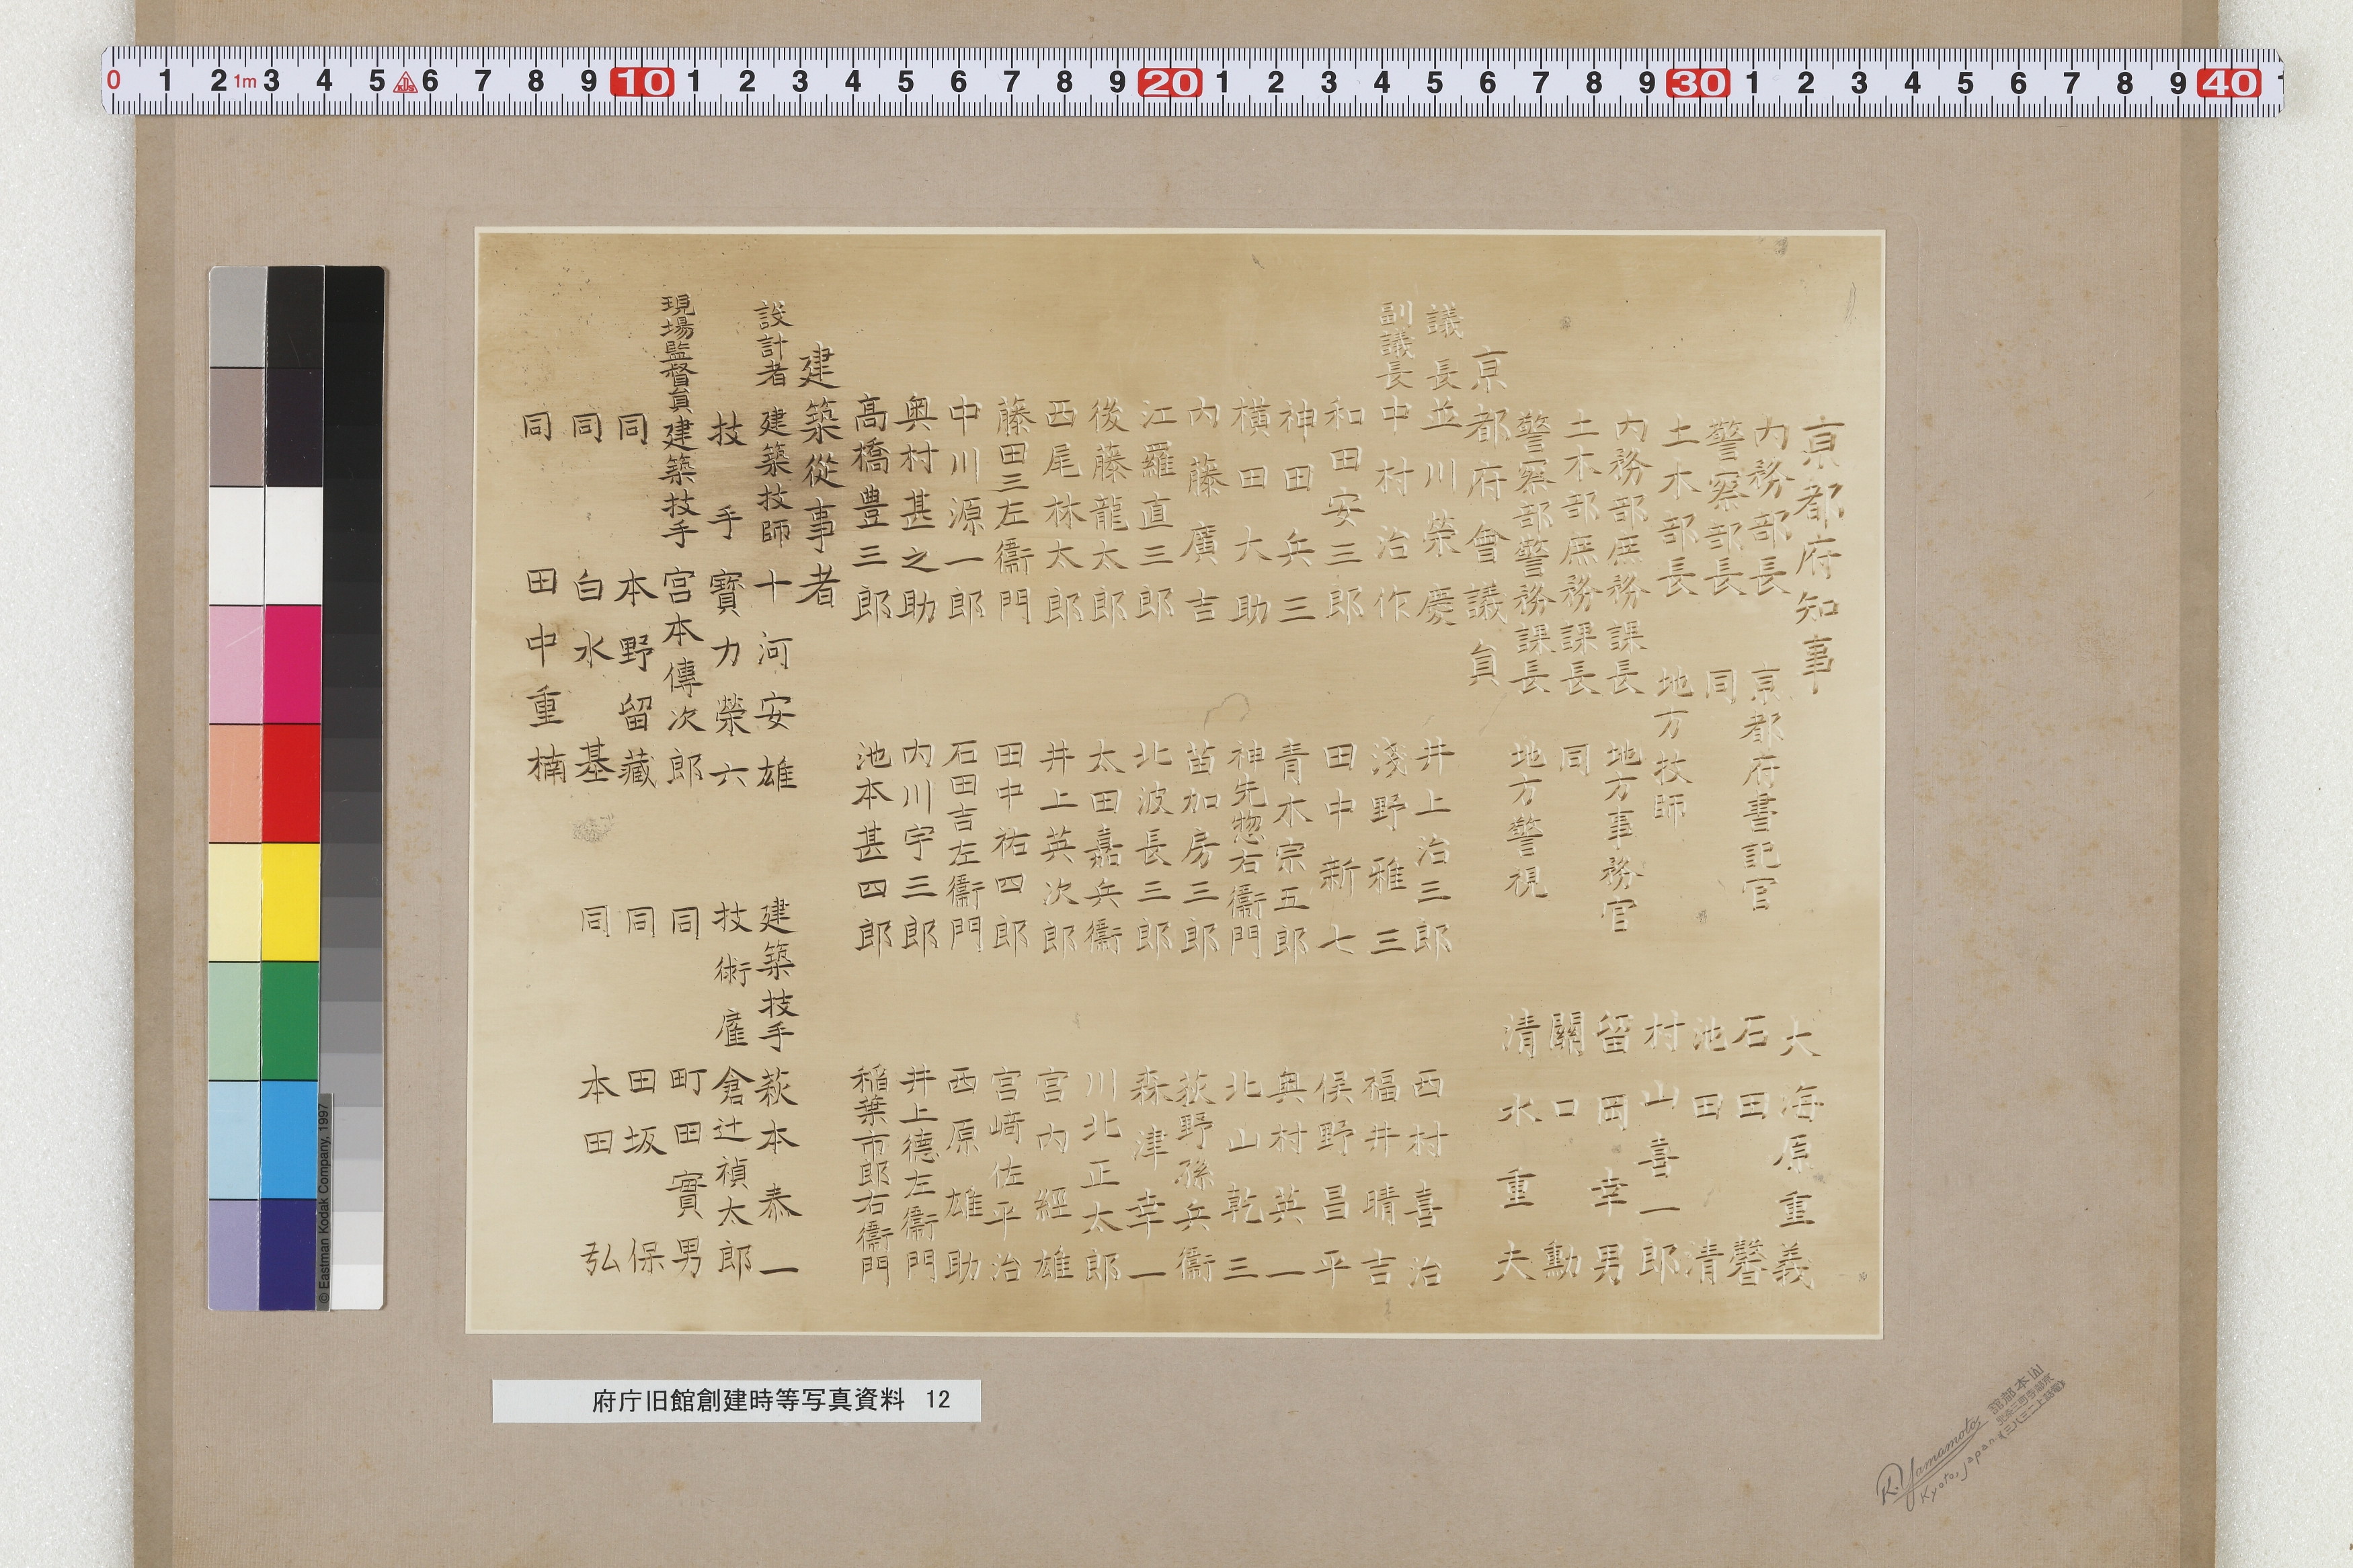 京都府知事 大海原重義
内務部長 京都府書記官 石田馨
警察部長 同 池田清
土木部長 地方技師 村山喜一郎
内務部庶務課長 地方事務官 留岡幸男
土木部庶務課長 同 關口勳
警察部警務課長 地方警視 清水重夫
京都府會議員
議長 並川榮慶 井上治三郎 西村喜治
副議長 中村治作 淺野雅三 福井晴吉
和田安三郎 田中新七 俣野昌平
神田兵三 青木宗五郎 奥村英一
横田大助 神先惣右衞門 北山乾三
内藤廣吉 苗加房三郎 荻野孫兵衞
江羅直三郎 北波長三郎 森津幸一
後藤龍太郎 太田嘉兵衞 川北正太郎
西尾林太郎 井上英次郎 宮内經雄
藤田三左衞門 田中祐四郎 宮﨑佐平治
中川源一郎 石田吉左衞門 西原雄助
奥村甚之助 内川宇三郎 井上德左衞門
高橋豊三郎 池本甚四郎 稲葉市郎右衞門
建築從事者
設計者 建築技師 十河安雄 建築技手 萩本泰一
技手 寳力榮六 技術雇 倉辻禎太郎
現場監督員 建築技手 宮本傳次郎 同 町田實男
同 本野留藏 同 田坂保
同 白水基 同 本田弘
同 田中重楠
府庁旧館創建時等写真資料 12
R.Yamamoto
Kyoto, Japan
0 1 2 1m 3 4 5 6 7 8 9 10 1 2 3 4 5 6 7 8 9 20 1 2 3 4 5 6 7 8 9 30 1 2 3 4 5 6 7 8 9 40
© Eastman Kodak Company, 1997